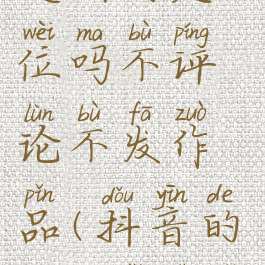 wèi ma bù píng
位吗不评
lùn bù fā zuò
论不发作
pǐn dǒu yīn de
品(抖音的